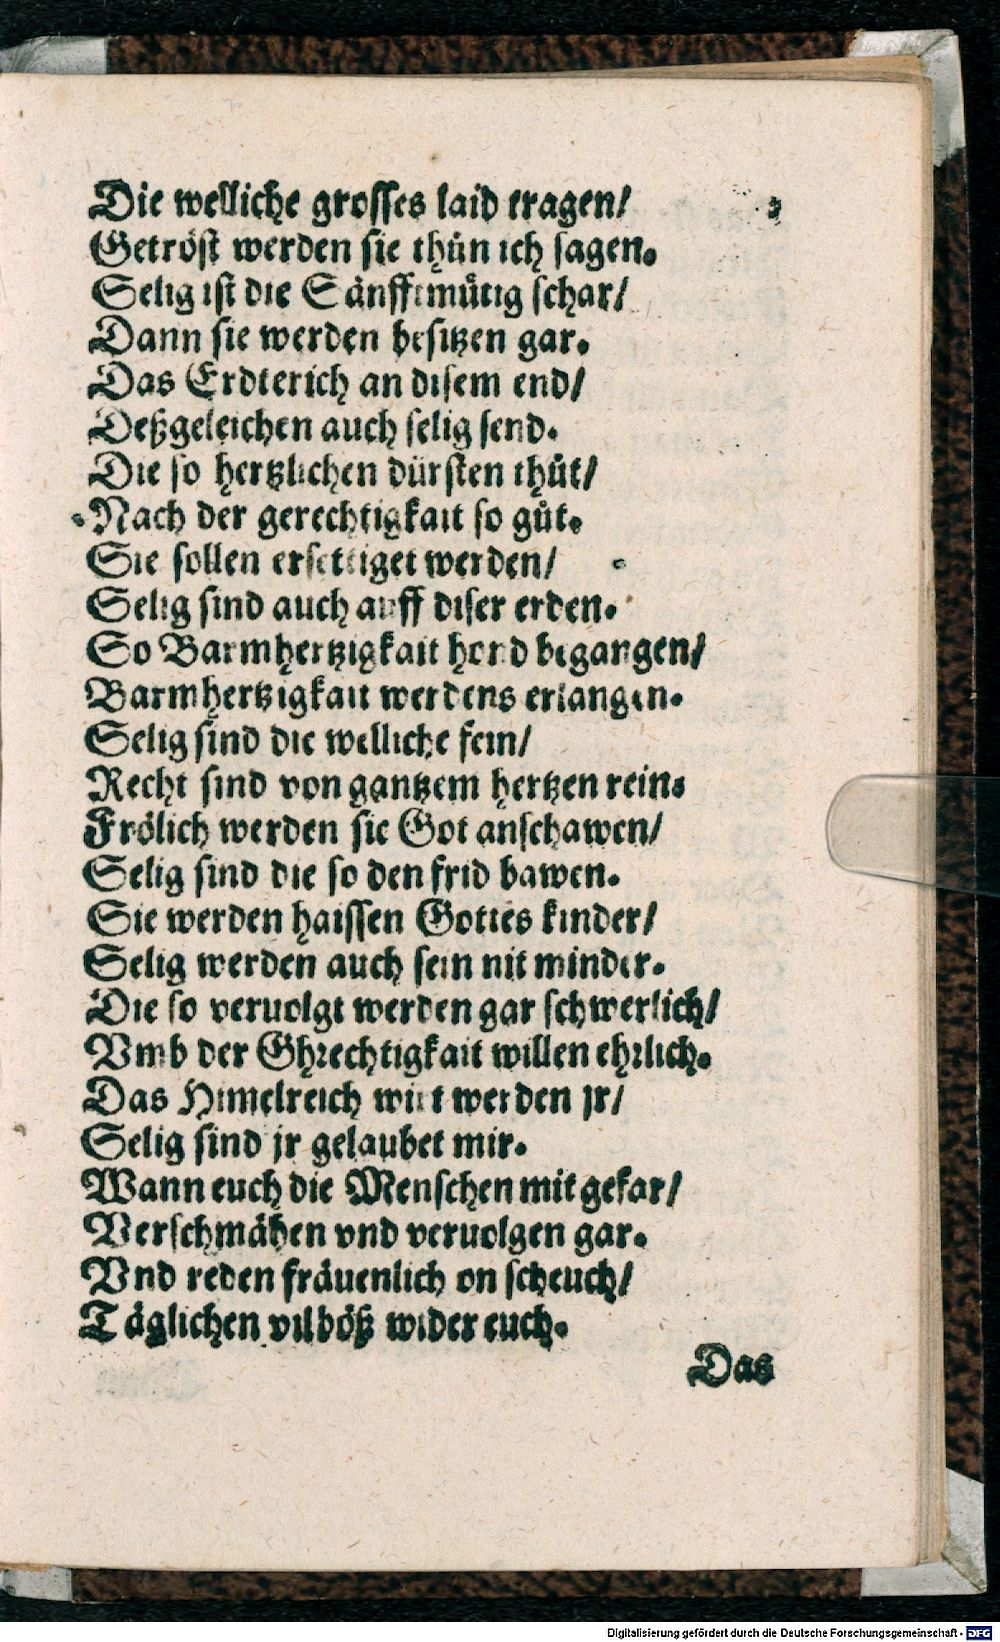 Die welliche grosses laid tragen/
Getröst werden sie thůn ich sagen.
Selig ist die Sänfftmůtig schar/
Dann sie werden besitzen gar.
Das Erdterich an disem end/
Deßgeleichen auch selig send.
Die so hertzlichen dürsten thůt/
Nach der gerechtigkait so gůt.
Sie sollen ersettiget werden/
Selig sind auch auff diser erden.
So Barmhertzigkait hond begangen/
Barmhertzigkait werdens erlangen.
Selig sind die welliche fein/
Recht sind von gantzem hertzen rein.
Frölich werden sie Got anschawen/
Selig sind die so den frid bawen.
Sie werden haissen Gottes kinder/
Selig werden auch sein nit minder.
Die so veruolgt werden gar schwerlich/
Vmb der Ghrechtigkait willen ehrlich.
Das Himelreich wirt werden jr/
Selig sind jr gelaubet mir.
Wann euch die Menschen mit gefar/
Verschmähen vnd veruolgen gar.
Vnd reden fräuenlich on scheuch/
Täglichen vil böß wider euch.
Das
Digitalisierung gefördert durch die Deutsche Forschungsgemeinschaft - DFG